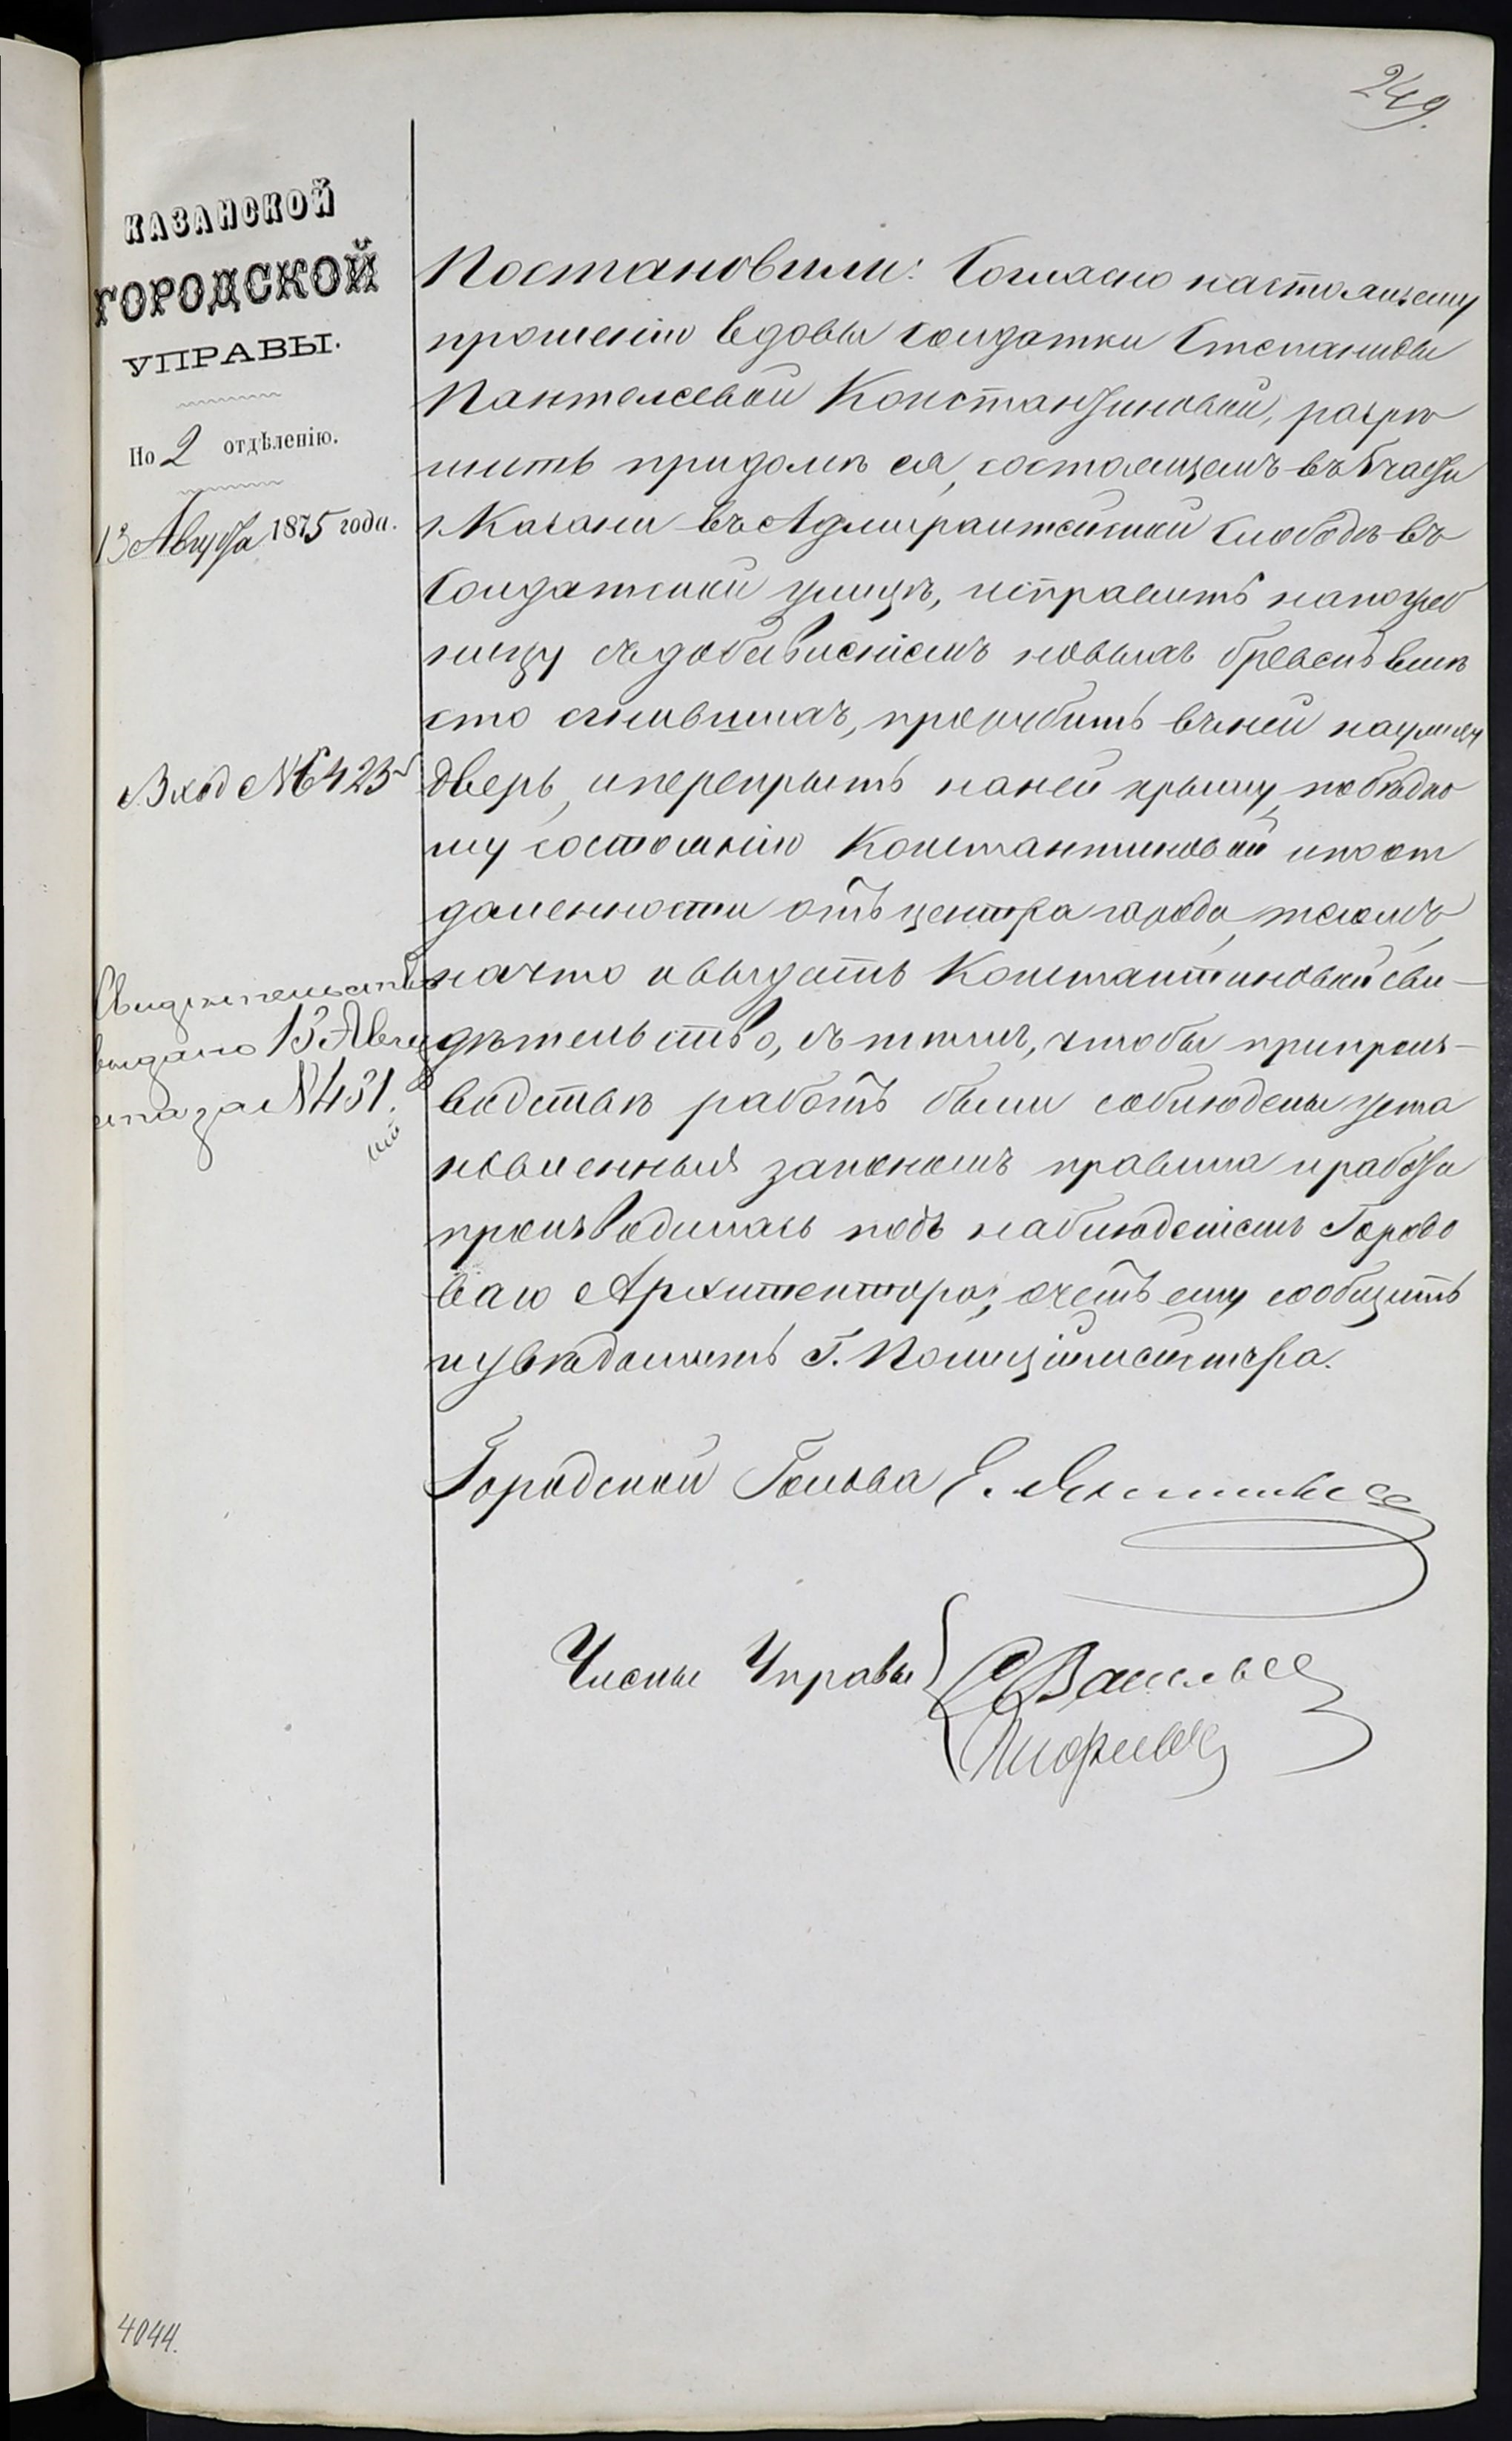 249.
КАЗАНСКОЙ
ГОРОДСКОЙ
УПРАВЫ.
По 2 отдѣленію.
13 Августа 1875 года.
Вход № 6423
Свидѣтельство
выдано 13 Авгу
ста за № 431.
Постановили: Согласно настоящему
прошенію вдовы солдатки Степаниды
Пантелеевой Константиновой, разрѣ
шить при домѣ ея, состоящемъ въ 5 части
г. Казани въ Адмиралтейской Слободѣ въ
Солдатской улицѣ, исправить напогреб
ницу съ добавленіемъ новыхъ бревенъ вмѣ
сто сгнившихъ, прорубить въ ней на улицу
дверь, и перекрыть на ней крышу, по бѣдно
му состоянію Константиновой и по от
даленности отъ центра города, тесомъ,
на что и выдать Константиновой сви-
дѣтельство, съ тѣмъ, чтобы при произ-
водствѣ работъ были соблюдены уста
новленныя закономъ правила и работа
производилась подъ наблюденіемъ Городо
ваго Архитектора; о чемъ ему сообщить
и увѣдомить Г. Полиціймейстера.
Городской Голова Е.
Члены Управы
Васильев
4044.